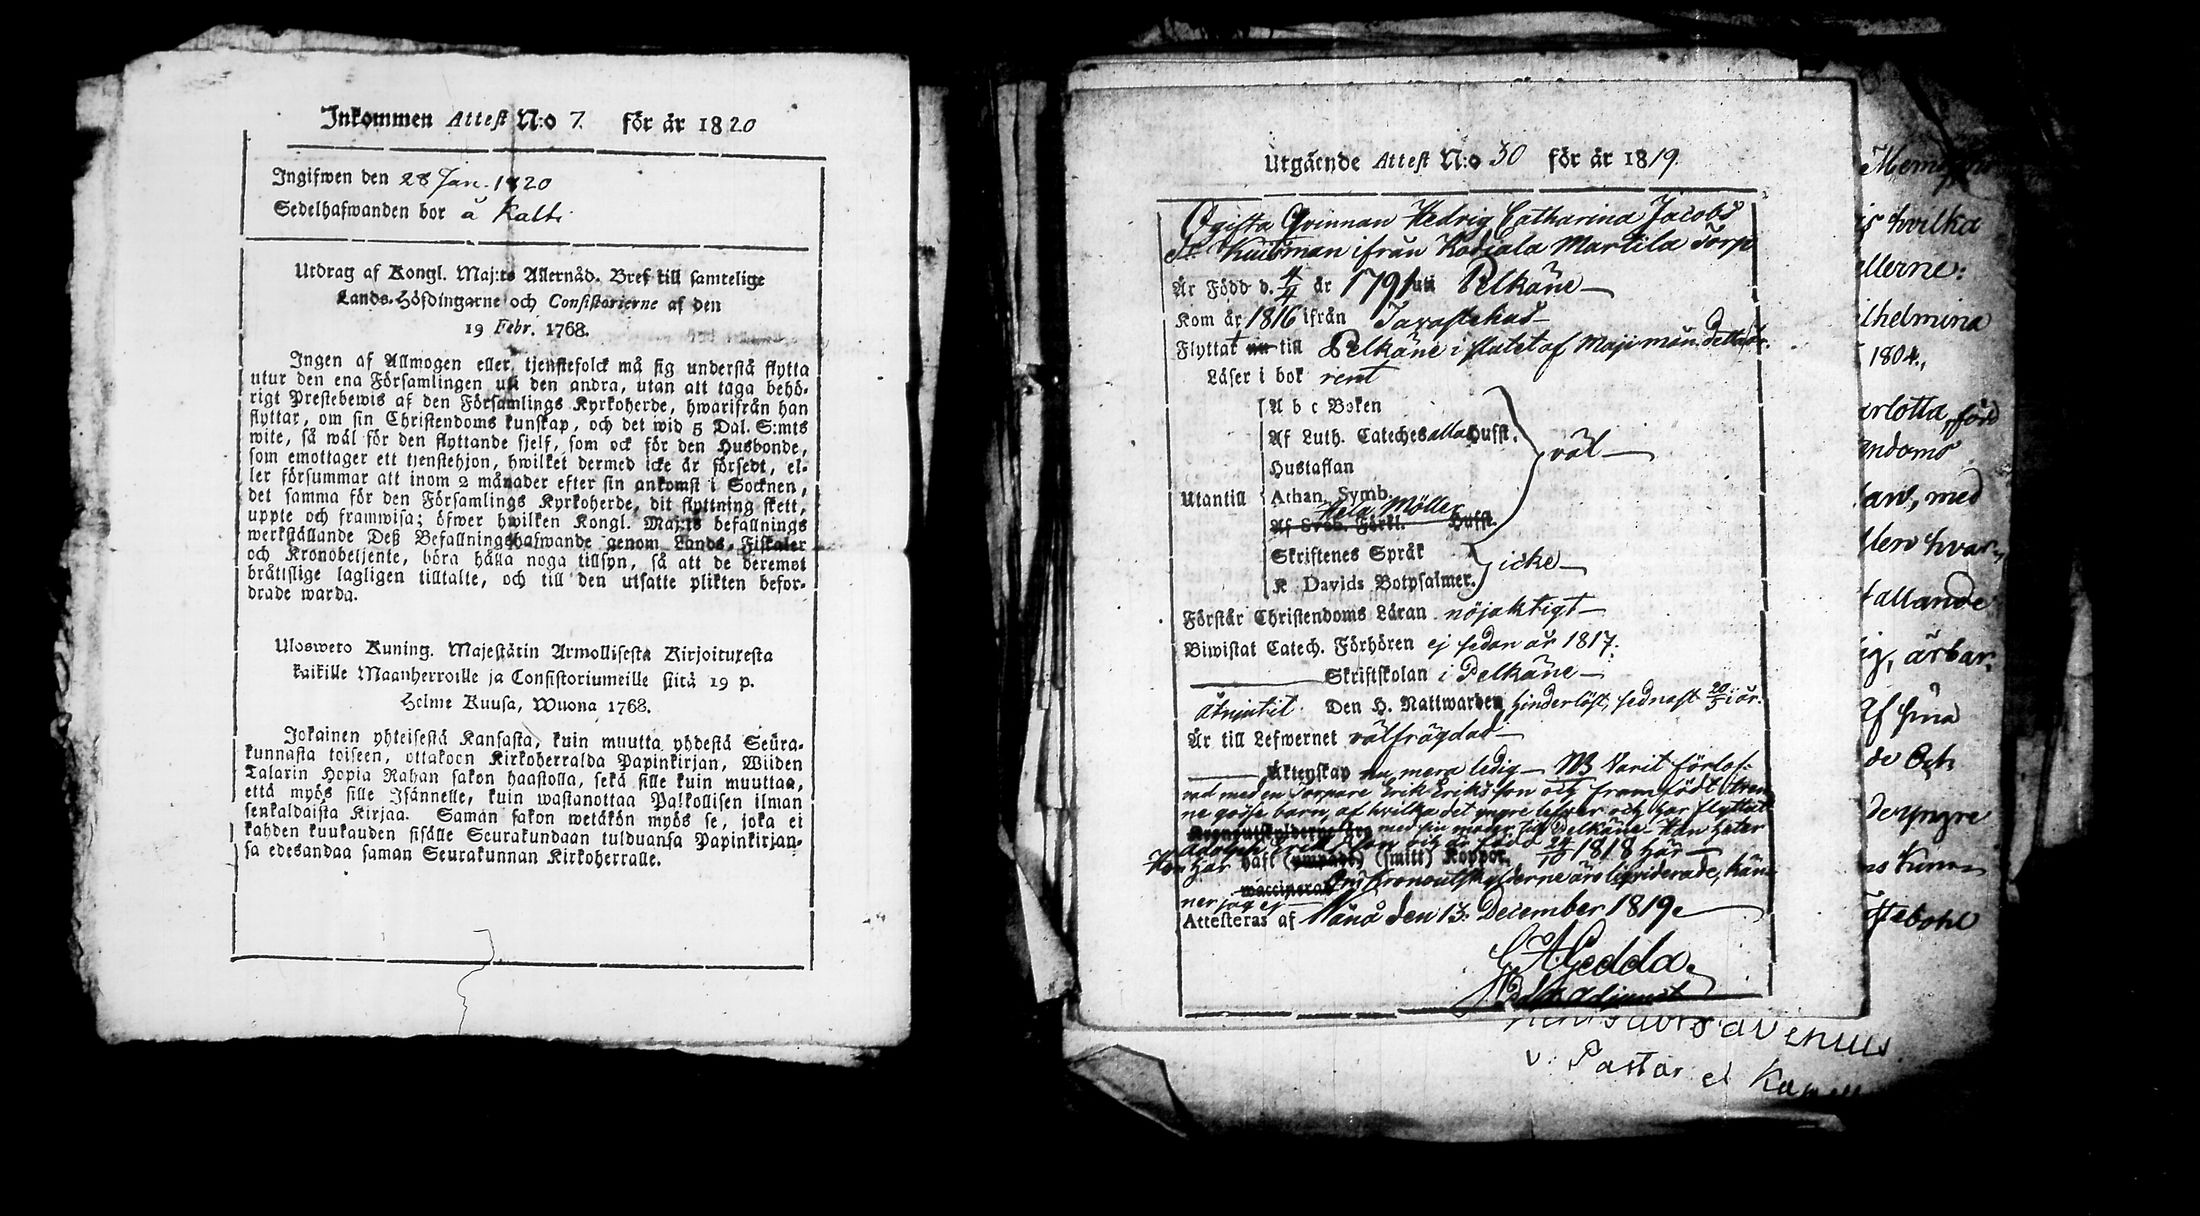 Inkommen Attest N:o 7. för år 1820
Ingifwen den 28 Jan. 1820
Sedelhafwanden bor å Kalti
Utdrag af Kongl. Maj:ts Allernåd. Bref till samtelige
Lands-Höfdingarne och Consistorierne af den
19 Febr. 1768.
Ingen af Allmogen eller tjenstefolck må sig understå flytta
utur den ena Församlingen uti den andra, utan att taga behö-
rigt Prestebewis af den Församlings Kyrkoherde, hwarifrån han
flyttar, om sin Christendoms kunskap, och det wid 5 Dal. S:mts
wite, så wäl för den flyttande sjelf, som ock för den Husbonde,
som emottager ett tjenstehjon, hwilket dermed icke är försedt, el-
ler försummar att inom 2 månader efter sin ankomst i Socknen,
det samma för den Församlings Kyrkoherde, dit flyttning skett,
uppte och framwisa; öfwer hwilken Kongl. Maj:ts befallnings
werkställande Deß Befallningshafwande genom Lands-Fiskaler
och Kronobetjente, böra hålla noga tillsyn, så att de deremot
bråttslige lagligen tilltalte, och till den utsatte plikten befor-
drade warda.
Uloswető Kuning. Majestätin Armollisesta Kirjoituxesta
kaikille Maanherroille ja Consistoriumeille siitä 19 p.
Helme Kuusa, Wuona 1768.
Jokainen yhteisestä Kansasta, kuin muutta yhdestä Seura-
kunnasta toiseen, ottakoon Kirkoherralda Papinkirjan, Wiiden
Talarin Hopia Rahan sakon haastolla, sekä sille kuin muuttaa,
että myös sille Isännelle, kuin wastanottaa Palkollisen ilman
senkaldaista Kirjaa. Saman sakon wetäkön myös se, joka ei
kahden kuukauden sisälle Seurakundaan tulduansa Papinkirjan-
sa edesandaa saman Seurakunnan Kirkoherralle.
Utgående Attest N:o 30 för år 1819.
Ogifta Qvinnan Hedvig Catharina Jacobs
dr. Kuusman ifrån Karjala Martila Torp
Är Född d. 4/4 år 1791 uti Pelkäne
Kom år 1816 ifrån Tavastehus
Flyttat nu till Pelkäne i slutet af Maji mån. detta år.
Läser i bok rent
A b c Boken
Af Luth. Cateches alla Husst.
väl
Hustaflan
Utantill
Athan. Symb.
Hela Möller
Af Sveb. Förkl. Husst.
Skriftenes Språk
icke
K. Davids Botpsalmer.
Förstår Christendoms Läran nöjaktigt
Biwistat Catech. Förhören ej sedan år 1817.
Skriftskolan i Pelkäne
Åtnjutit Den H. Nattwarden hinderlöst, sednast 20/5 i år.
Är till Lefwernet välfrägdad
Äktenskap nu mera ledig NB Varit förlof-
vad med en Torpare Erik Eriksson och framfödt tven-
ne gosse barn, af hvilka det yngre lefver och har flyttat
Kronoutskylderne äro med sin moder till Pelkäne. Han heter
24/10 1818 här
Hon har haft (ympade) (smitt) Koppor,
waccinerad Om Kronoutskylderne äro liqviderade, kän-
ner jag ej
Attesteras af Vånå den 13 December 1819.
G A Gedda.
Adjunct
v. Pastor
Memo
hvilka
ellerne:
ilhelmina
1804.,
arlotta, föd
endoms
med
hvar-
fallande
ärbar.
Af sina
de Och
de yngre